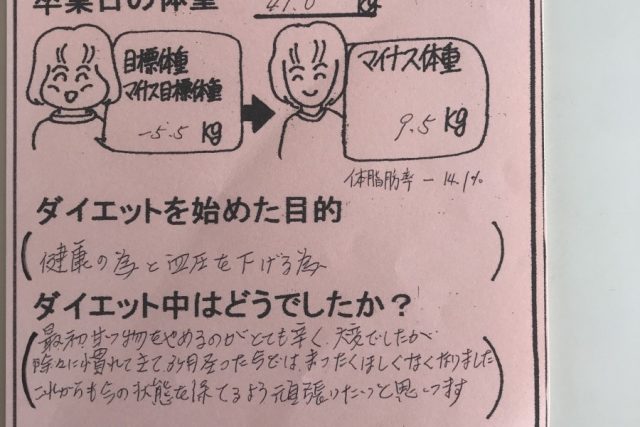 卒業日の体重 47.0 kg
目標体重
マイナス目標体重
-5.5 kg
マイナス体重
9.5 kg
体脂肪率 - 14.1%
ダイエットを始めた目的
健康の為と血圧を下げる為
ダイエット中はどうでしたか？
最初甘い物をやめるのがとても辛く、大変でしたが
除々に慣れてきて3ヶ月たった今では、まったくほしくなくなりました
これからも今の状態を保てるよう頑張りたいと思います